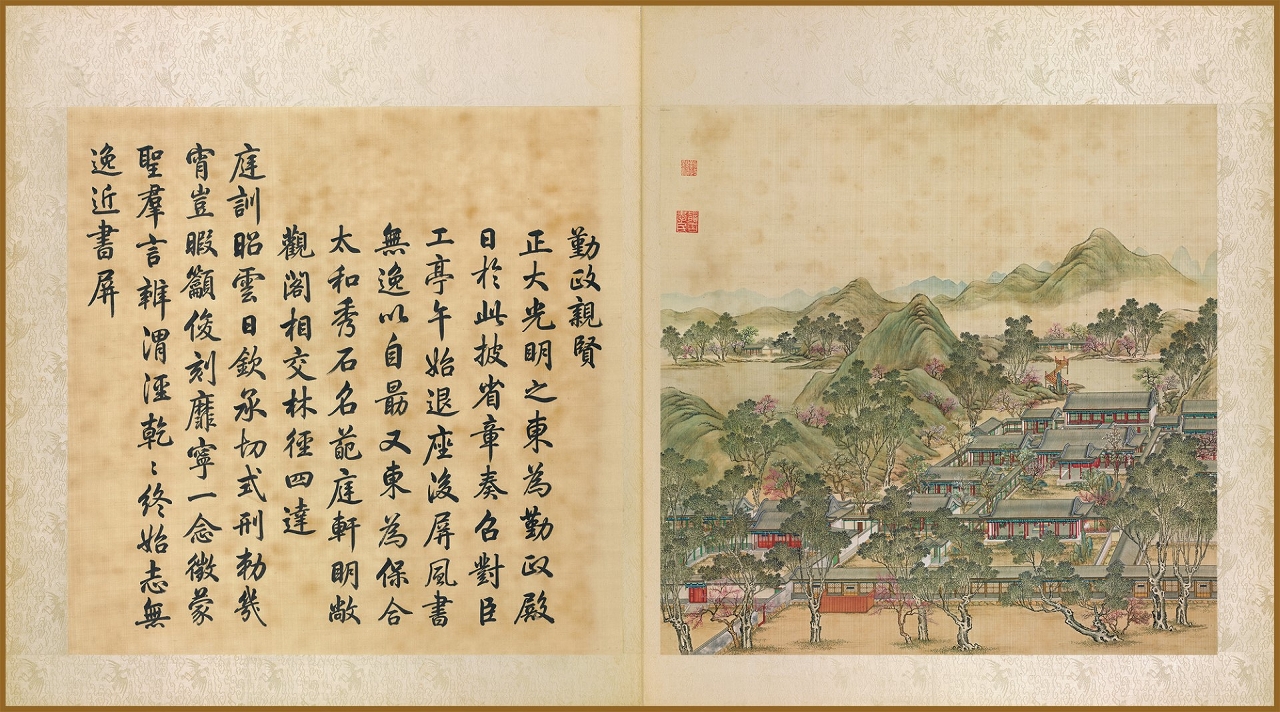 勤政親賢
正大光明之東為勤政殿
日於此披省章奏召對臣
工亭午始退座後屏風書
無逸以自勗又東為保合
太和秀石名葩庭軒明敞
觀閣相交林徑四達
庭訓昭雲日欽承切式刑勅幾
宵豈暇籲俊刻靡寧一念徵蒙
聖羣言辨渭涇乾〻終始志無
逸近書屏